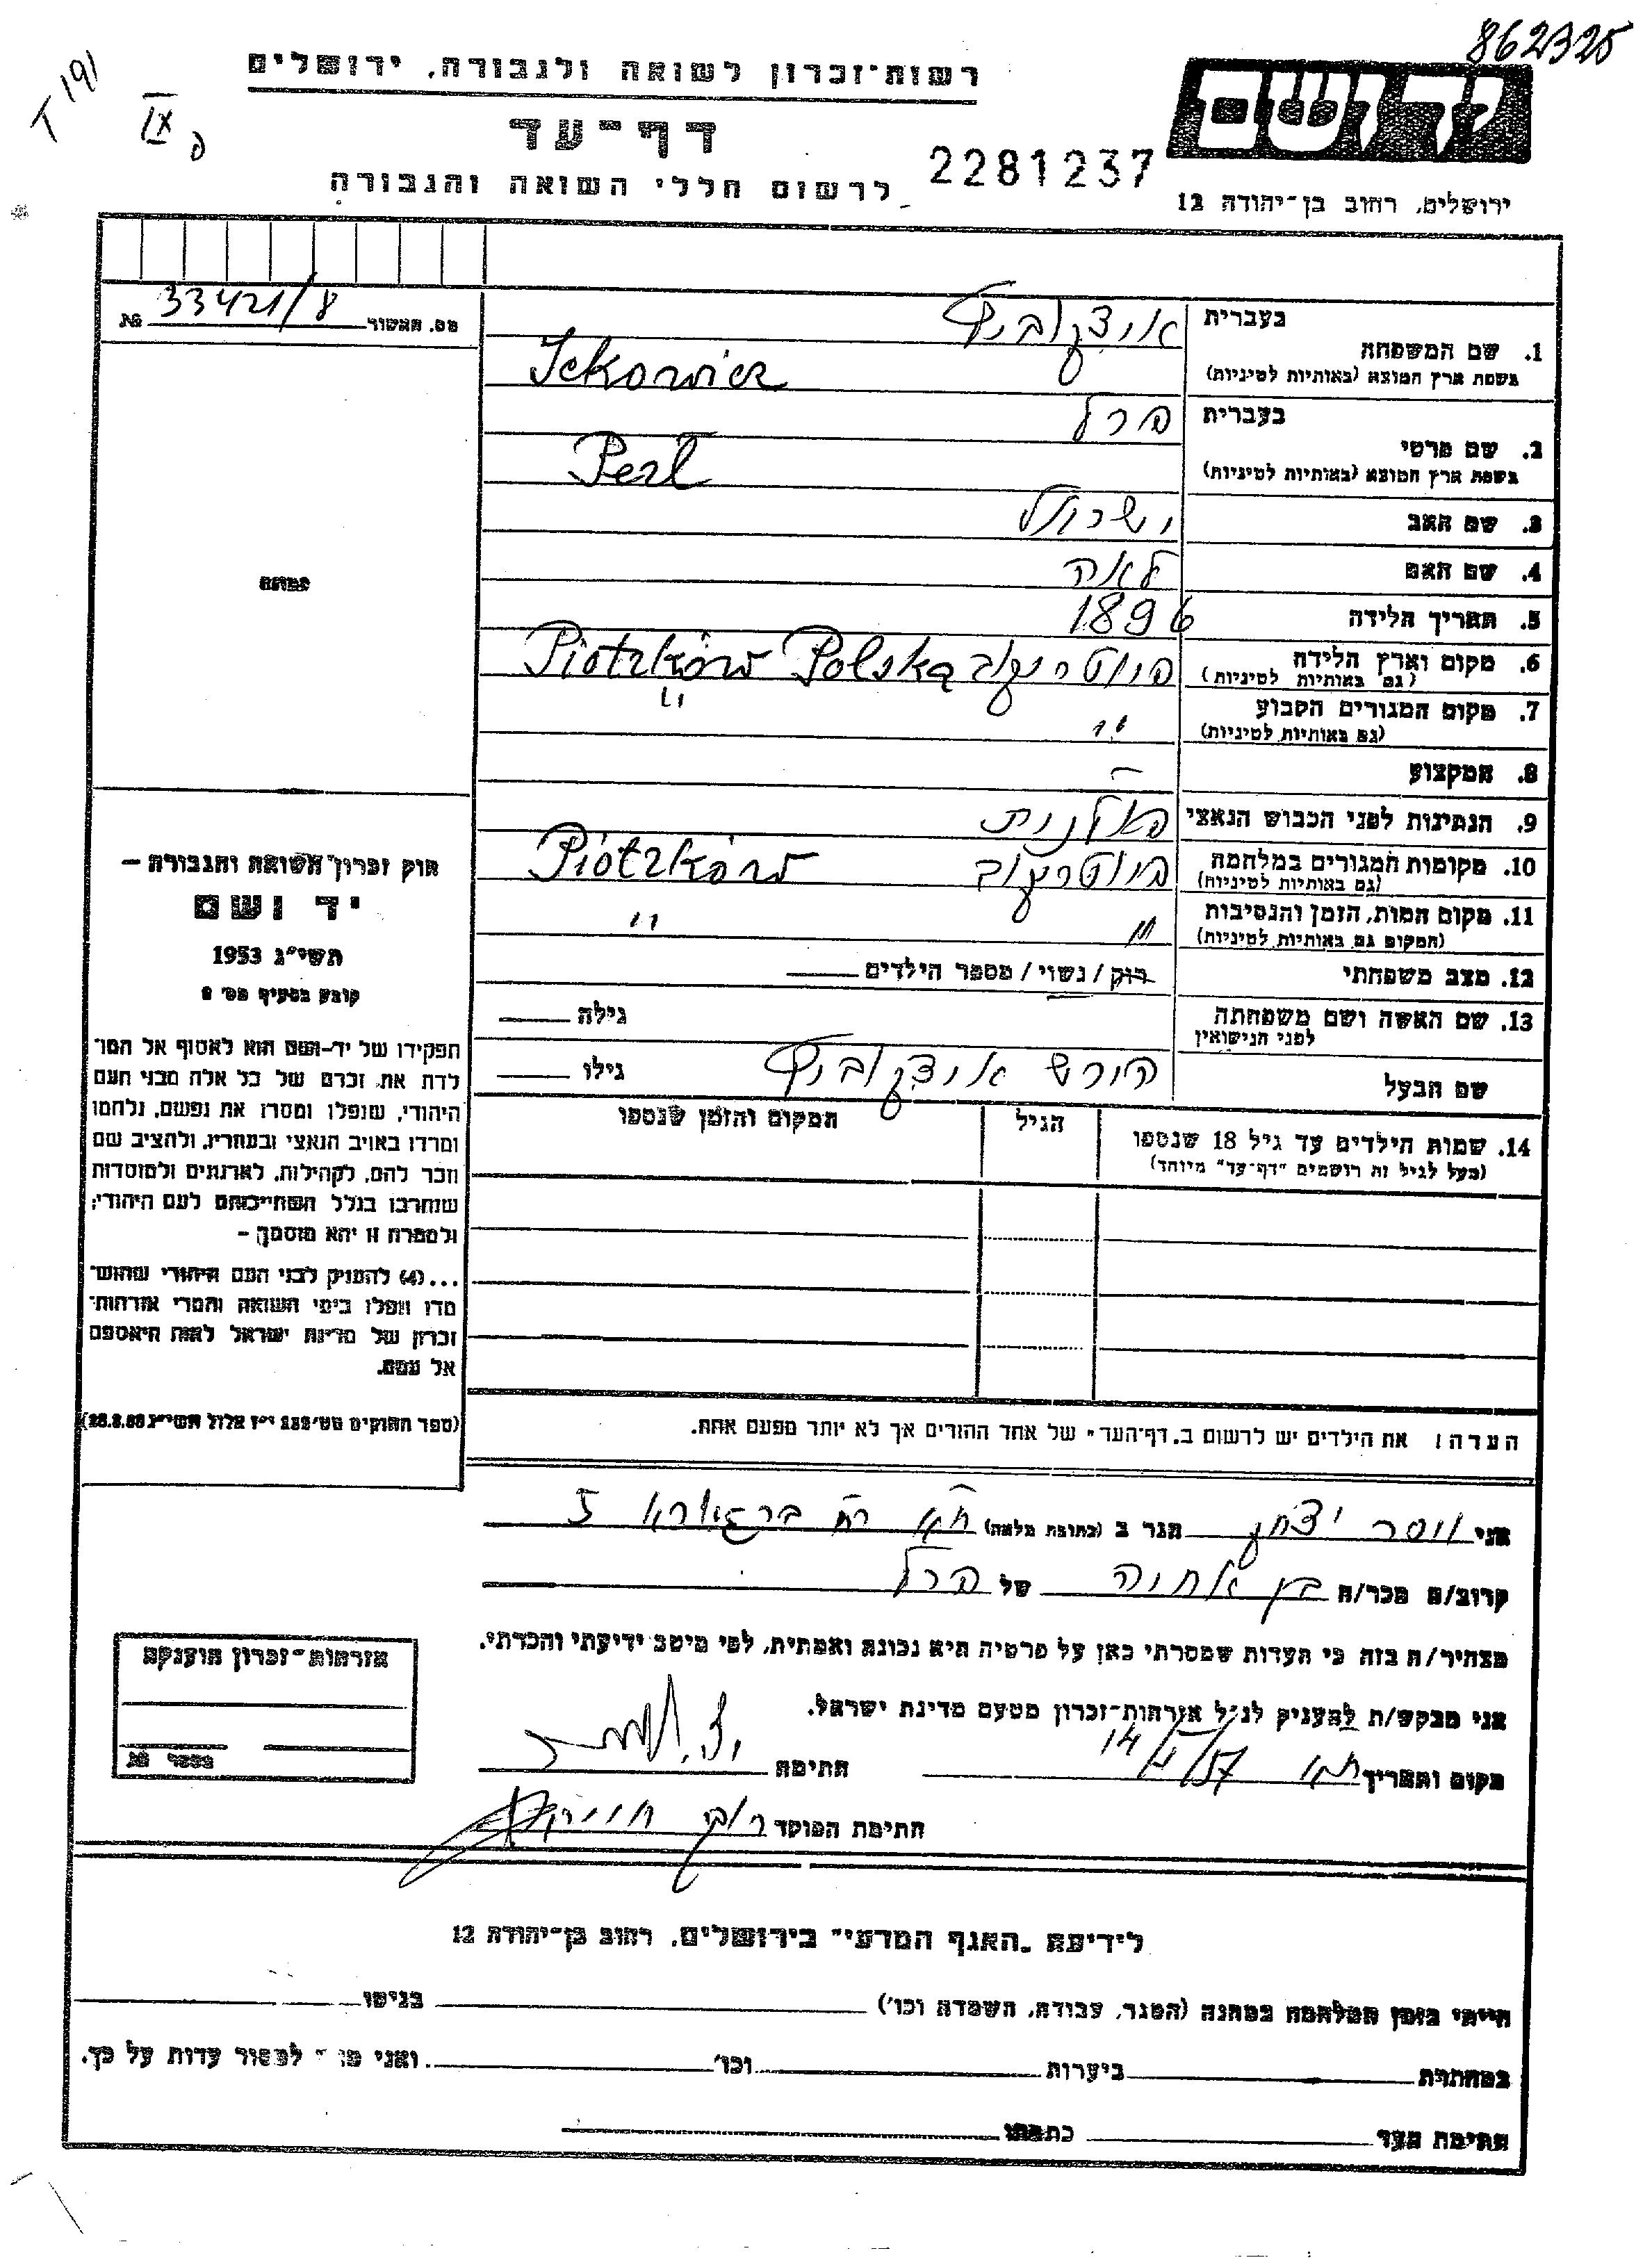 862325
T 191
IX
רשות־זכרון לשואה ולגבורה, ירושלים
דף־עד
לרשום חללי השואה והגבורה
2281237
ירושלים, רחוב בן־יהודה 12
מס. האשור 33421/8 №
בעברית איצקוביץ
1. שם המשפחה
בשפת ארץ המוצא (באותיות לטיניות) Ickowicz
בעברית פרל
2. שם פרטי
בשפת ארץ המוצא (באותיות לטיניות) Perl
3. שם האב ישראל
4. שם האם לאה
5. תאריך הלידה 1896
6. מקום וארץ הלידה פיוטרקוב Piotrków Polska
(גם באותיות לטיניות)
7. מקום המגורים הקבוע " "
(גם באותיות לטיניות)
8. המקצוע —
9. הנתינות לפני הכבוש הנאצי פולנית
10. מקומות המגורים במלחמה פיוטרקוב Piotrków
(גם באותיות לטיניות)
11. מקום המות, הזמן והנסיבות " "
(המקום גם באותיות לטיניות)
12. מצב משפחתי רווק / נשוי / מספר הילדים
13. שם האשה ושם משפחתה גילה
לפני הנישואין
שם הבעל הירש איצקוביץ גילו
14. שמות הילדים עד גיל 18 שנספו הגיל המקום והזמן שנספו
(מעל לגיל זה רושמים "דף־עד" מיוחד)
הערה: את הילדים יש לרשום ב"דף־העד" של אחד ההורים אך לא יותר מפעם אחת.
תמונה
חוק זכרון השואה והגבורה –
יד ושם
תשי"ג 1953
קובע בסעיף מס' 2
תפקידו של יד־ושם הוא לאסוף אל המו־
לדת את זכרם של כל אלה מבני העם
היהודי, שנפלו ומסרו את נפשם, נלחמו
ומרדו באויב הנאצי ובעוזריו, ולהציב שם
וזכר להם, לקהילות, לארגונים ולמוסדות
שנחרבו בגלל השתייכותם לעם היהודי;
ולמטרה זו יהא מוסמך –
...(4) להעניק לבני העם היהודי שהוש־
מדו ונפלו בימי השואה והמרי אזרחות־
זכרון של מדינת ישראל לאות היאספם
אל עמם.
(ספר החוקים מס' 132 י"ז אלול תשי"ג 28.8.53)
אני ווסר יצחק הגר ב (כתובת מלאה) חיפה רח' 5
קרוב/ה מכר/ה בן אחיה של פרל
מצהיר/ה בזה כי העדות שמסרתי כאן על פרטיה היא נכונה ואמתית, לפי מיטב ידיעתי והכרתי.
אני מבקש/ת להעניק לנ"ל אזרחות־זכרון מטעם מדינת ישראל.
מקום ותאריך חיפה 14/5/57 חתימה
חתימת הפוקד
אזרחות־זכרון הוענקה
מספר מס.
לידיעת "האגף המדעי" בירושלים, רחוב בן־יהודה 12
הייתי בזמן המלחמה במחנה (הסגר, עבודה, השמדה וכו') בגיטו
במחתרת ביערות וכו' ואני לפסור עדות על כך.
חתימת העד כתבתו